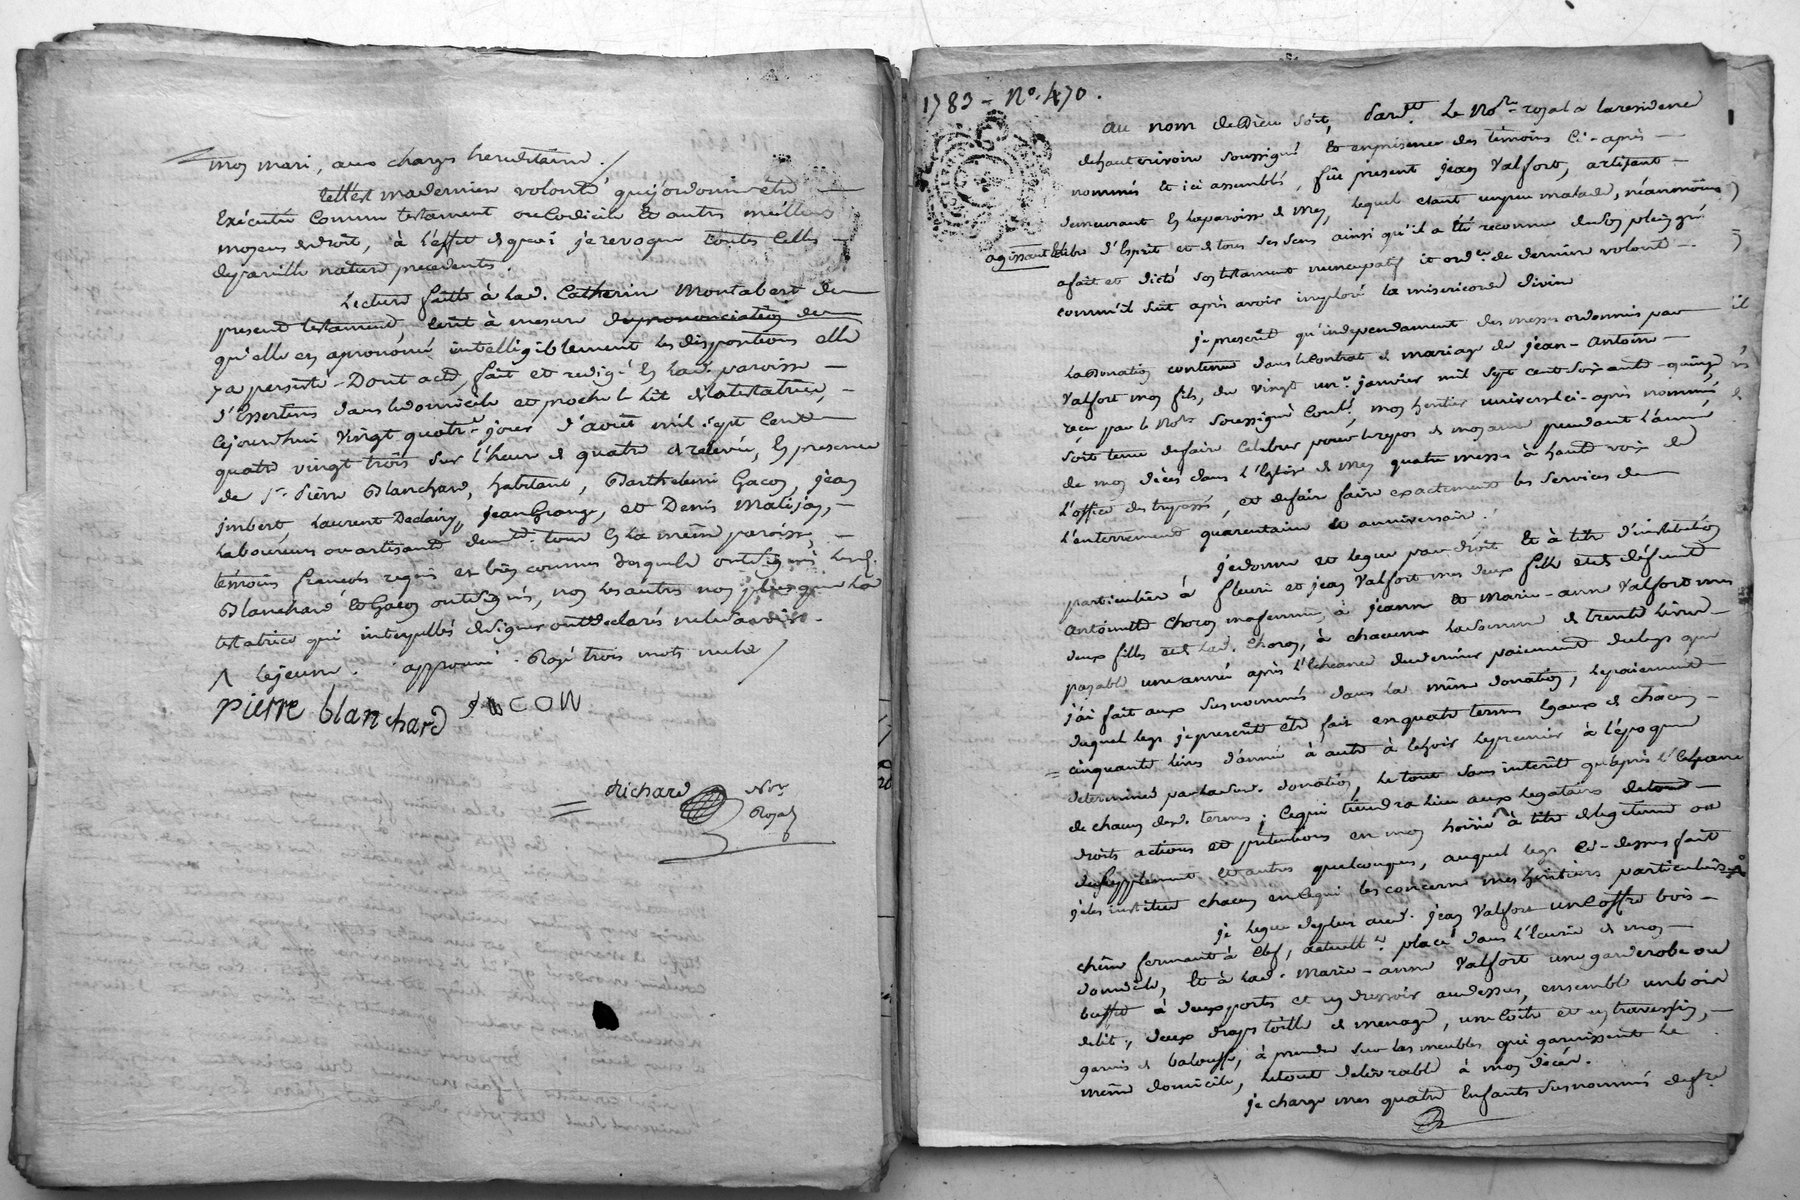 mon mari, aux charges hereditaires./
telle est ma derniere volonté qui j'ordonne etre
Exécutée comme testament ou Codicile Et autres meilleurs
moyens de droit, à l'effet de quoi je revoque toutes Celles
de pareille nature precedentes.
Lecture faitte à lad. Catherine Montabert du
present testament, Ecrit à mesure de prononciation du
qu'elle en a prononcé intelligiblement les dispositions elle
y a persisté - Dont acte fait et redigé En lad. paroisse
d'Essertines dans le domicile et proche le lit de la testatrice,
Cejourd'hui vingt quatre jour d'août mil sept Cent
quatre vingt trois sur l'heure de quatre de relevée, En presence
de sr. Pierre Blanchard, habitant, Barthelemi Gacon, jean
jmbert Laurent Declairy, jean Grange, et Denis Matijon,
Laboureurs ou artisants demt. tous En la même paroisse,
temoins français requis et bien connus desquels ont signés lesd.
Blanchard Et Gacon ont signés, non les autres non plus que la
testatrice qui interpellés de signer ont declarés ne le savoir.
Λ Lejeune. approuvé. Rayé trois mots nuls/
pierre blanchard gacon
Richard Nore
Royal
1783 - No. 470.
au nom de Dieu soit, Pardt. Le Nore royal a la residence
de haute rivoire soussigné Et en presence des temoins Ci-après
nommés Et ici assemblés, fût present jean Valfort, artisant
demeurant En la paroisse de Mey, lequel etant un peu malade, néanmoins
agissant Libre d'Esprit et de tous ses sens ainsi qu'il a Eté reconnu de son plein gré
a fait et dicté son testament nuncupatif et ordce. de derniere volonté
comm'il suit après avoir imploré la misericorde divine
je prescrit qu'independament des messes ordonnées par
la donation contenue dans le Contrat de mariage de jean-Antoine
Valfort mon fils, du vingt un e. janvier mil sept cent soixante-quinze
reçu par le Nore soussigné Conté. mon heritier universel ci-après nommé
soit tenu de faire Celebrer pour le repos de mon ame pendant l'année
de mon décès dans l'Eglise de Mey quatre messes à haute voix de
l'office des trepassés, et de faire faire exactement les services de
l'enterrement quarentaine Et anniversaire.
je donne et legue par droit Et à titre d'institution
particuliere à fleuri et jean Valfort mes deux fils et de défunte
Antoinette Choron ma femme, à jeanne Et Marie-anne Valfort mes
deux filles et de lad. Choron, à chacune la somme de trente livres
payable une année après l'Echeance du dernier paiement du legs que
j'ai fait aux susnommés dans la même donation, le paiement
duquel legs je prescrit être fait en quatre termes Egaux de chacun
cinquante livres d'année à autre à Echoir le premier à l'époque
determinée par lad. donation, Le tout sans interêt qu'après l'Echeance
de chacun desd. termes; Ce qui tiendra lieu aux legataires de tous
droits actions et pretentions en mon hoirie Λ à titre de legitime ou
de supplement Et autres quelconques, auquel legs Ci-dessus fait
je les institue chacun en ce qui les concerne mes heritiers particuliers
je legue de plus aud. jean Valfort un Coffre bois
chêne fermant à Clef, actuellt. placé dans l'Ecurie de mon
domicile, Et à lad. Marie-anne Valfort une garderobe ou
buffet à deux portes et un dressoir au dessus, ensemble un bois
de lit, deux draps toille de menage, une Coite et un traversin,
garnis de balouffe, à prendre sur les meubles qui garnissent le
même domicile, le tout delivrable à mon décès.
je charge mes quatre Enfants susnommés de se